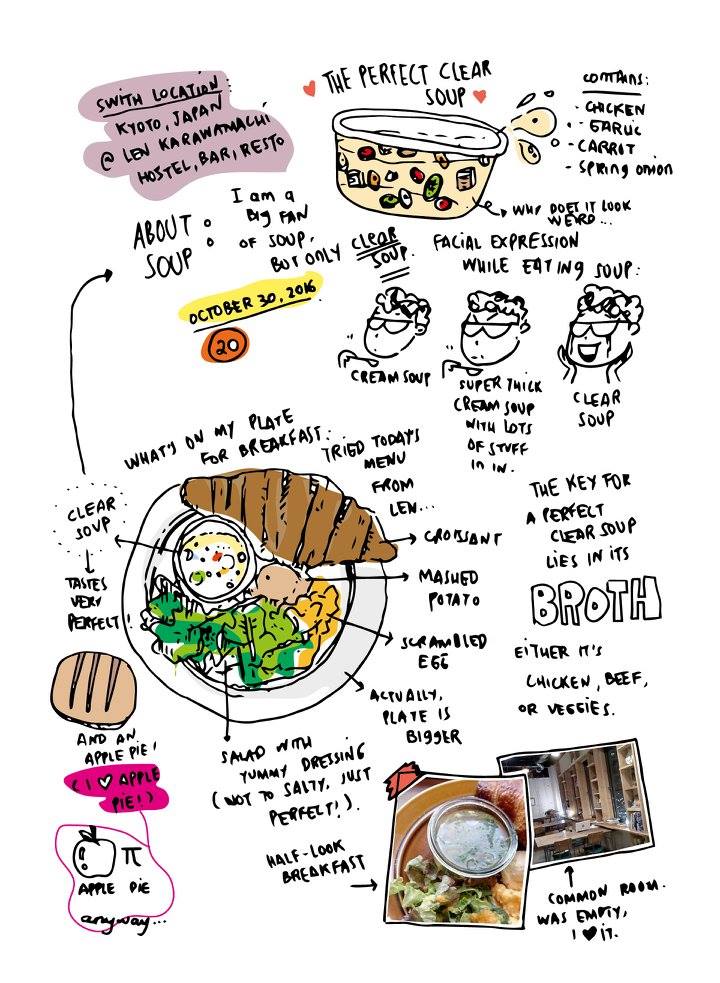 SWITH LOCATION
KYOTO, JAPAN
@ LEN KARAWAMACHI
HOSTEL, BAR, RESTO
THE PERFECT CLEAR
SOUP
CONTAINS:
- CHICKEN
- GARLIC
- CARROT
- SPRING ONION
WHY DOES IT LOOK
WEIRD...
ABOUT
SOUP
:
I am a
BIG FAN
OF SOUP,
BUT ONLY CLEAR
SOUP.
OCTOBER 30, 2016
20
FACIAL EXPRESSION
WHILE EATING SOUP:
CREAM SOUP
SUPER THICK
CREAM SOUP
WITH LOTS
OF STUFF
IN IN.
CLEAR
SOUP
WHAT'S ON MY PLATE
FOR BREAKFAST:
TRIED TODAY'S
MENU
FROM
LEN...
CLEAR
SOUP
TASTES
VERY
PERFECT!
CROISSANT
MASHED
POTATO
SCRAMBLED
EGG
ACTUALLY,
PLATE IS
BIGGER
SALAD WITH
YUMMY DRESSING
(NOT TO SALTY, JUST
PERFECT!).
AND AN
APPLE PIE!
(I ♥ APPLE
PIE!)
π
APPLE PIE
anyway...
THE KEY FOR
A PERFECT
CLEAR SOUP
LIES IN ITS
BROTH
EITHER IT'S
CHICKEN, BEEF,
OR VEGGIES.
HALF-LOOK
BREAKFAST
COMMON ROOM.
WAS EMPTY,
I ♥ IT.